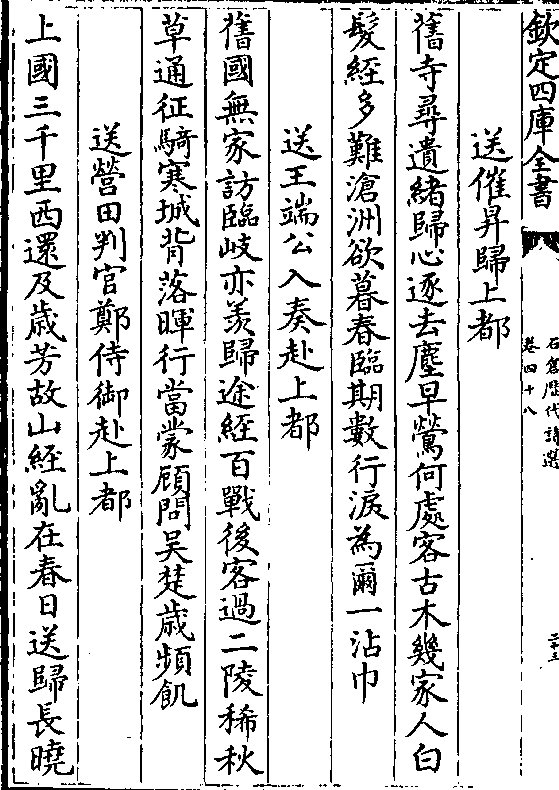 欽定四庫全書
石倉歷代詩選
卷四十八
二十三
送催昇歸上都
舊寺尋遺緒歸心逐去塵早鶯何處客古木幾家人白
髮經多難滄洲欲暮春臨期數行淚為爾一沾巾
送王端公入奏赴上都
舊國無家訪臨岐亦羨歸途經百戰後客過二陵稀秋
草通征騎寒城背落暉行當蒙顧問吳楚歳頻飢
送營田判官鄭侍御赴上都
上國三千里西還及歳芳故山經亂在春日送歸長曉